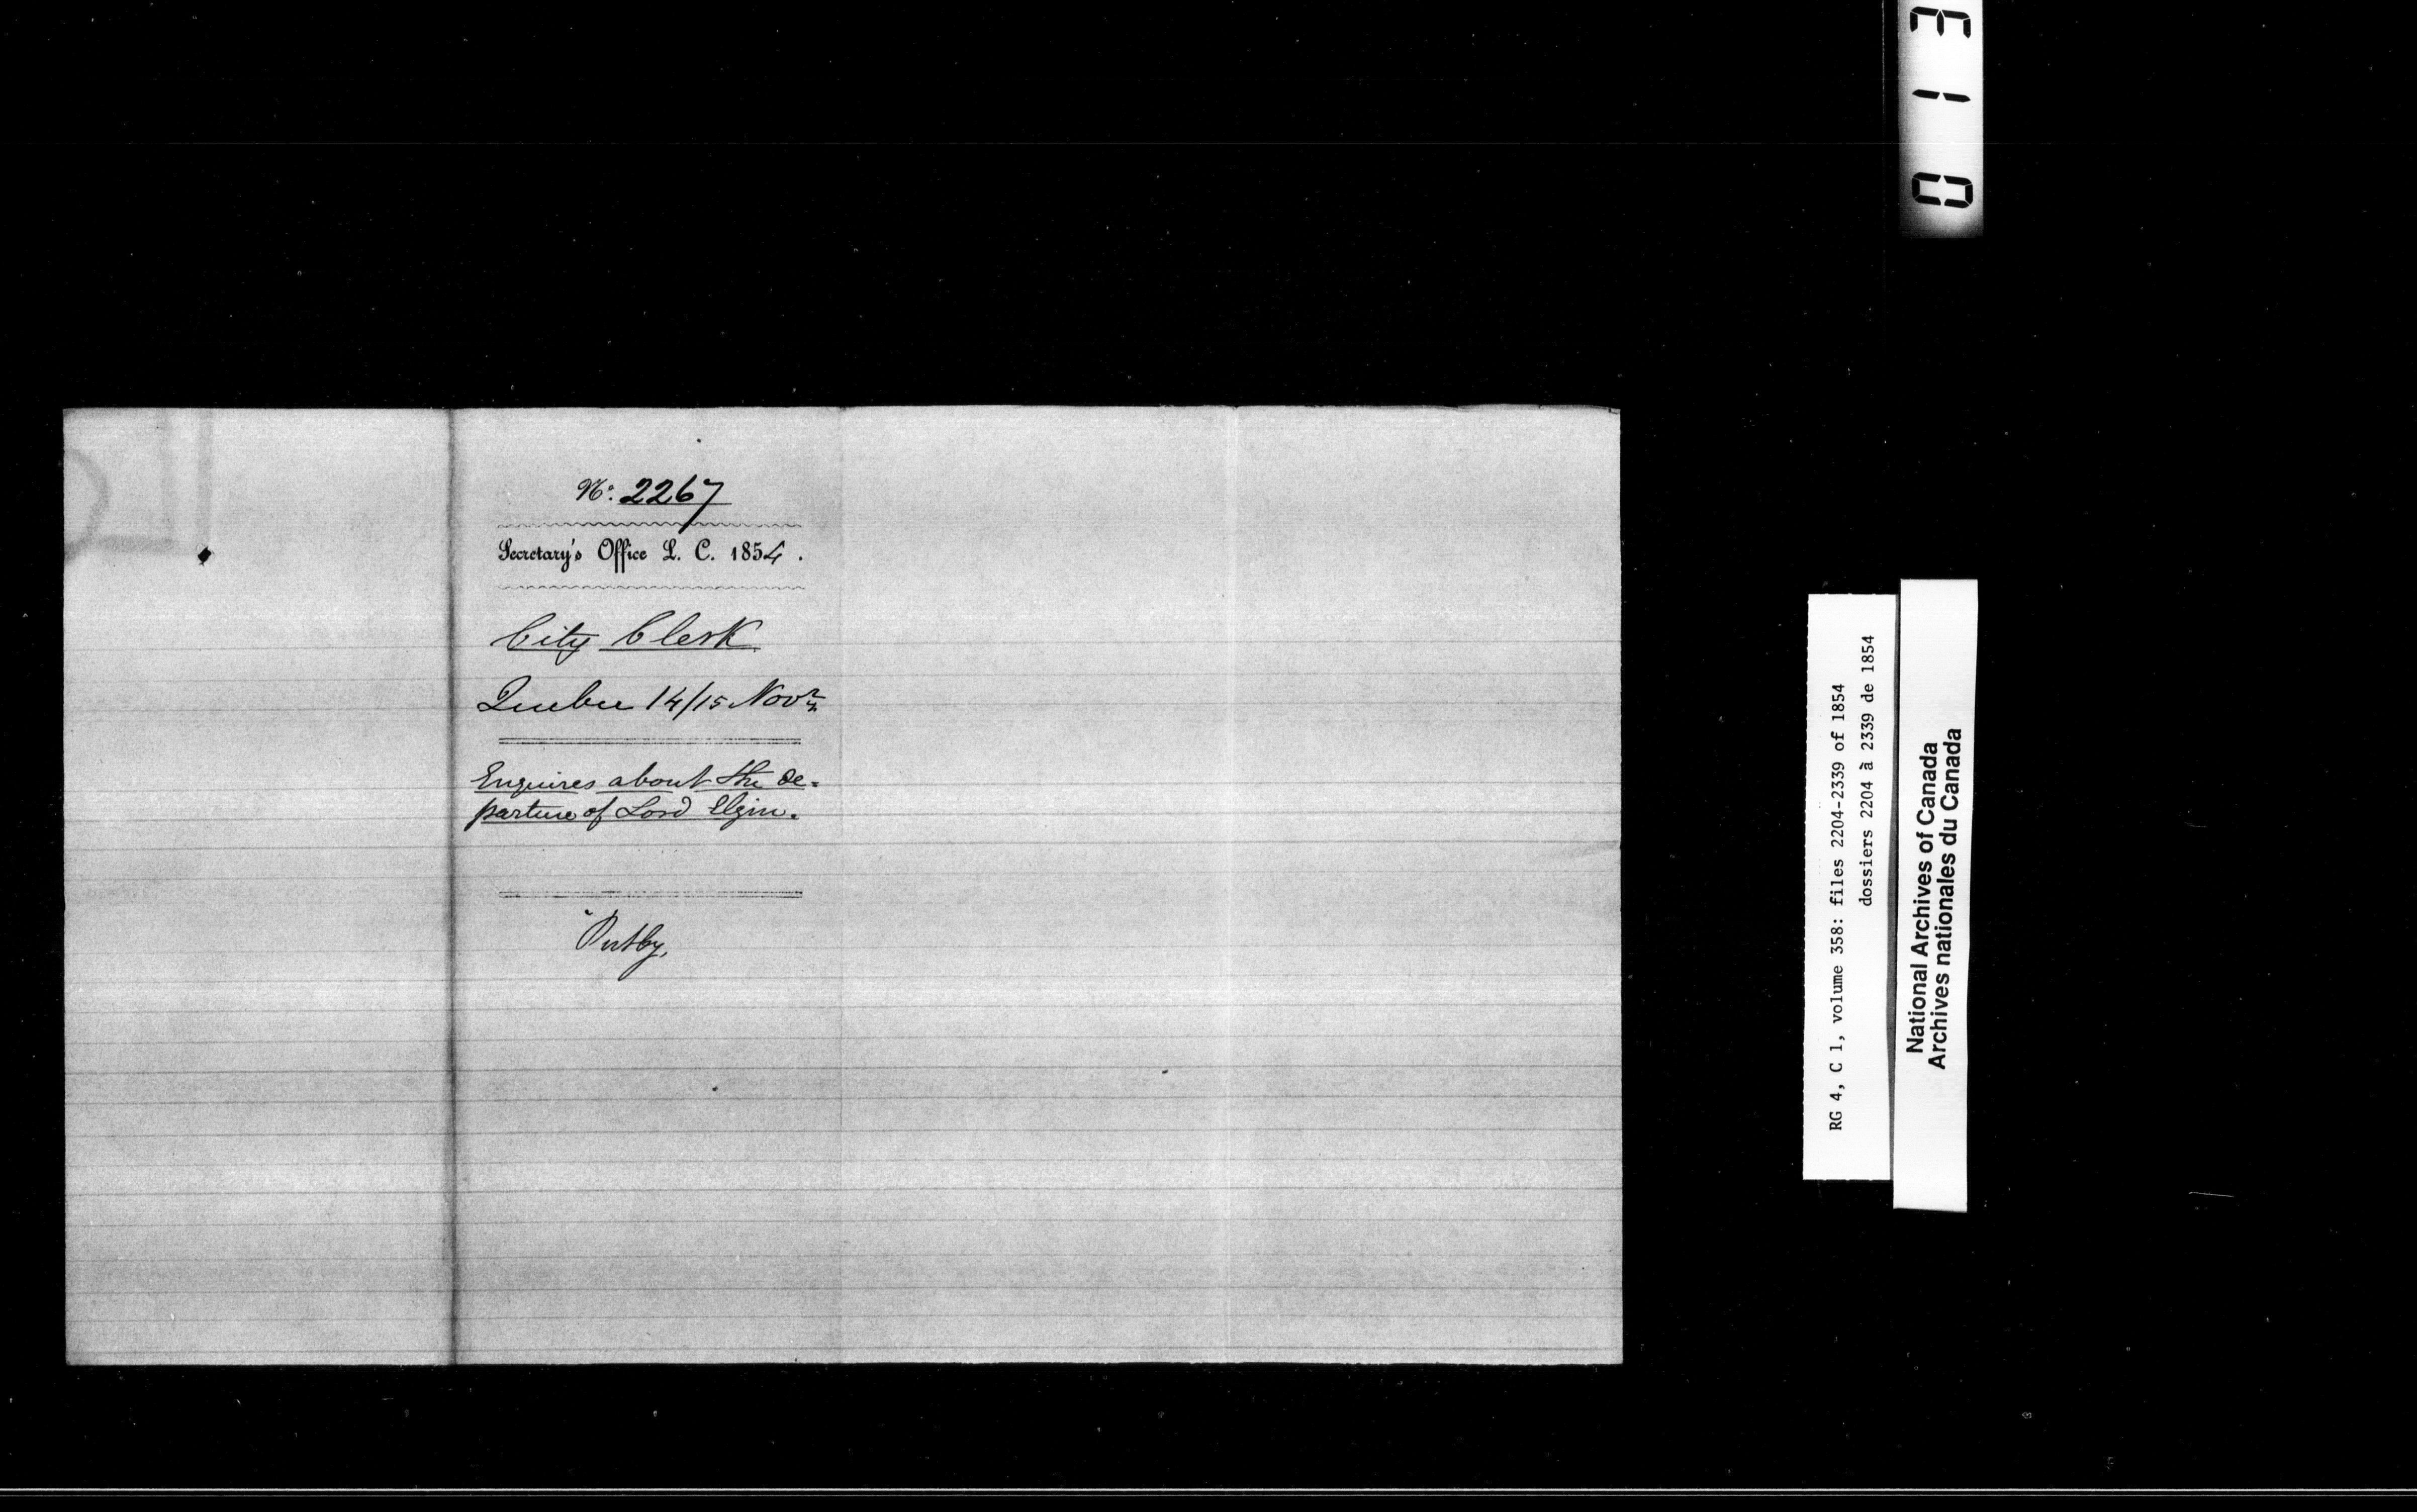 No. 2267
Secretary's Office L. C. 1854.
City Clerk
Quebec 14/15 Novr.
Enquires about the de-
parture of Lord Elgin.
013
RG 4, C 1, volume 358: files 2204-2339 of 1854
dossiers 2204 à 2339 de 1854
National Archives of Canada
Archives nationales du Canada